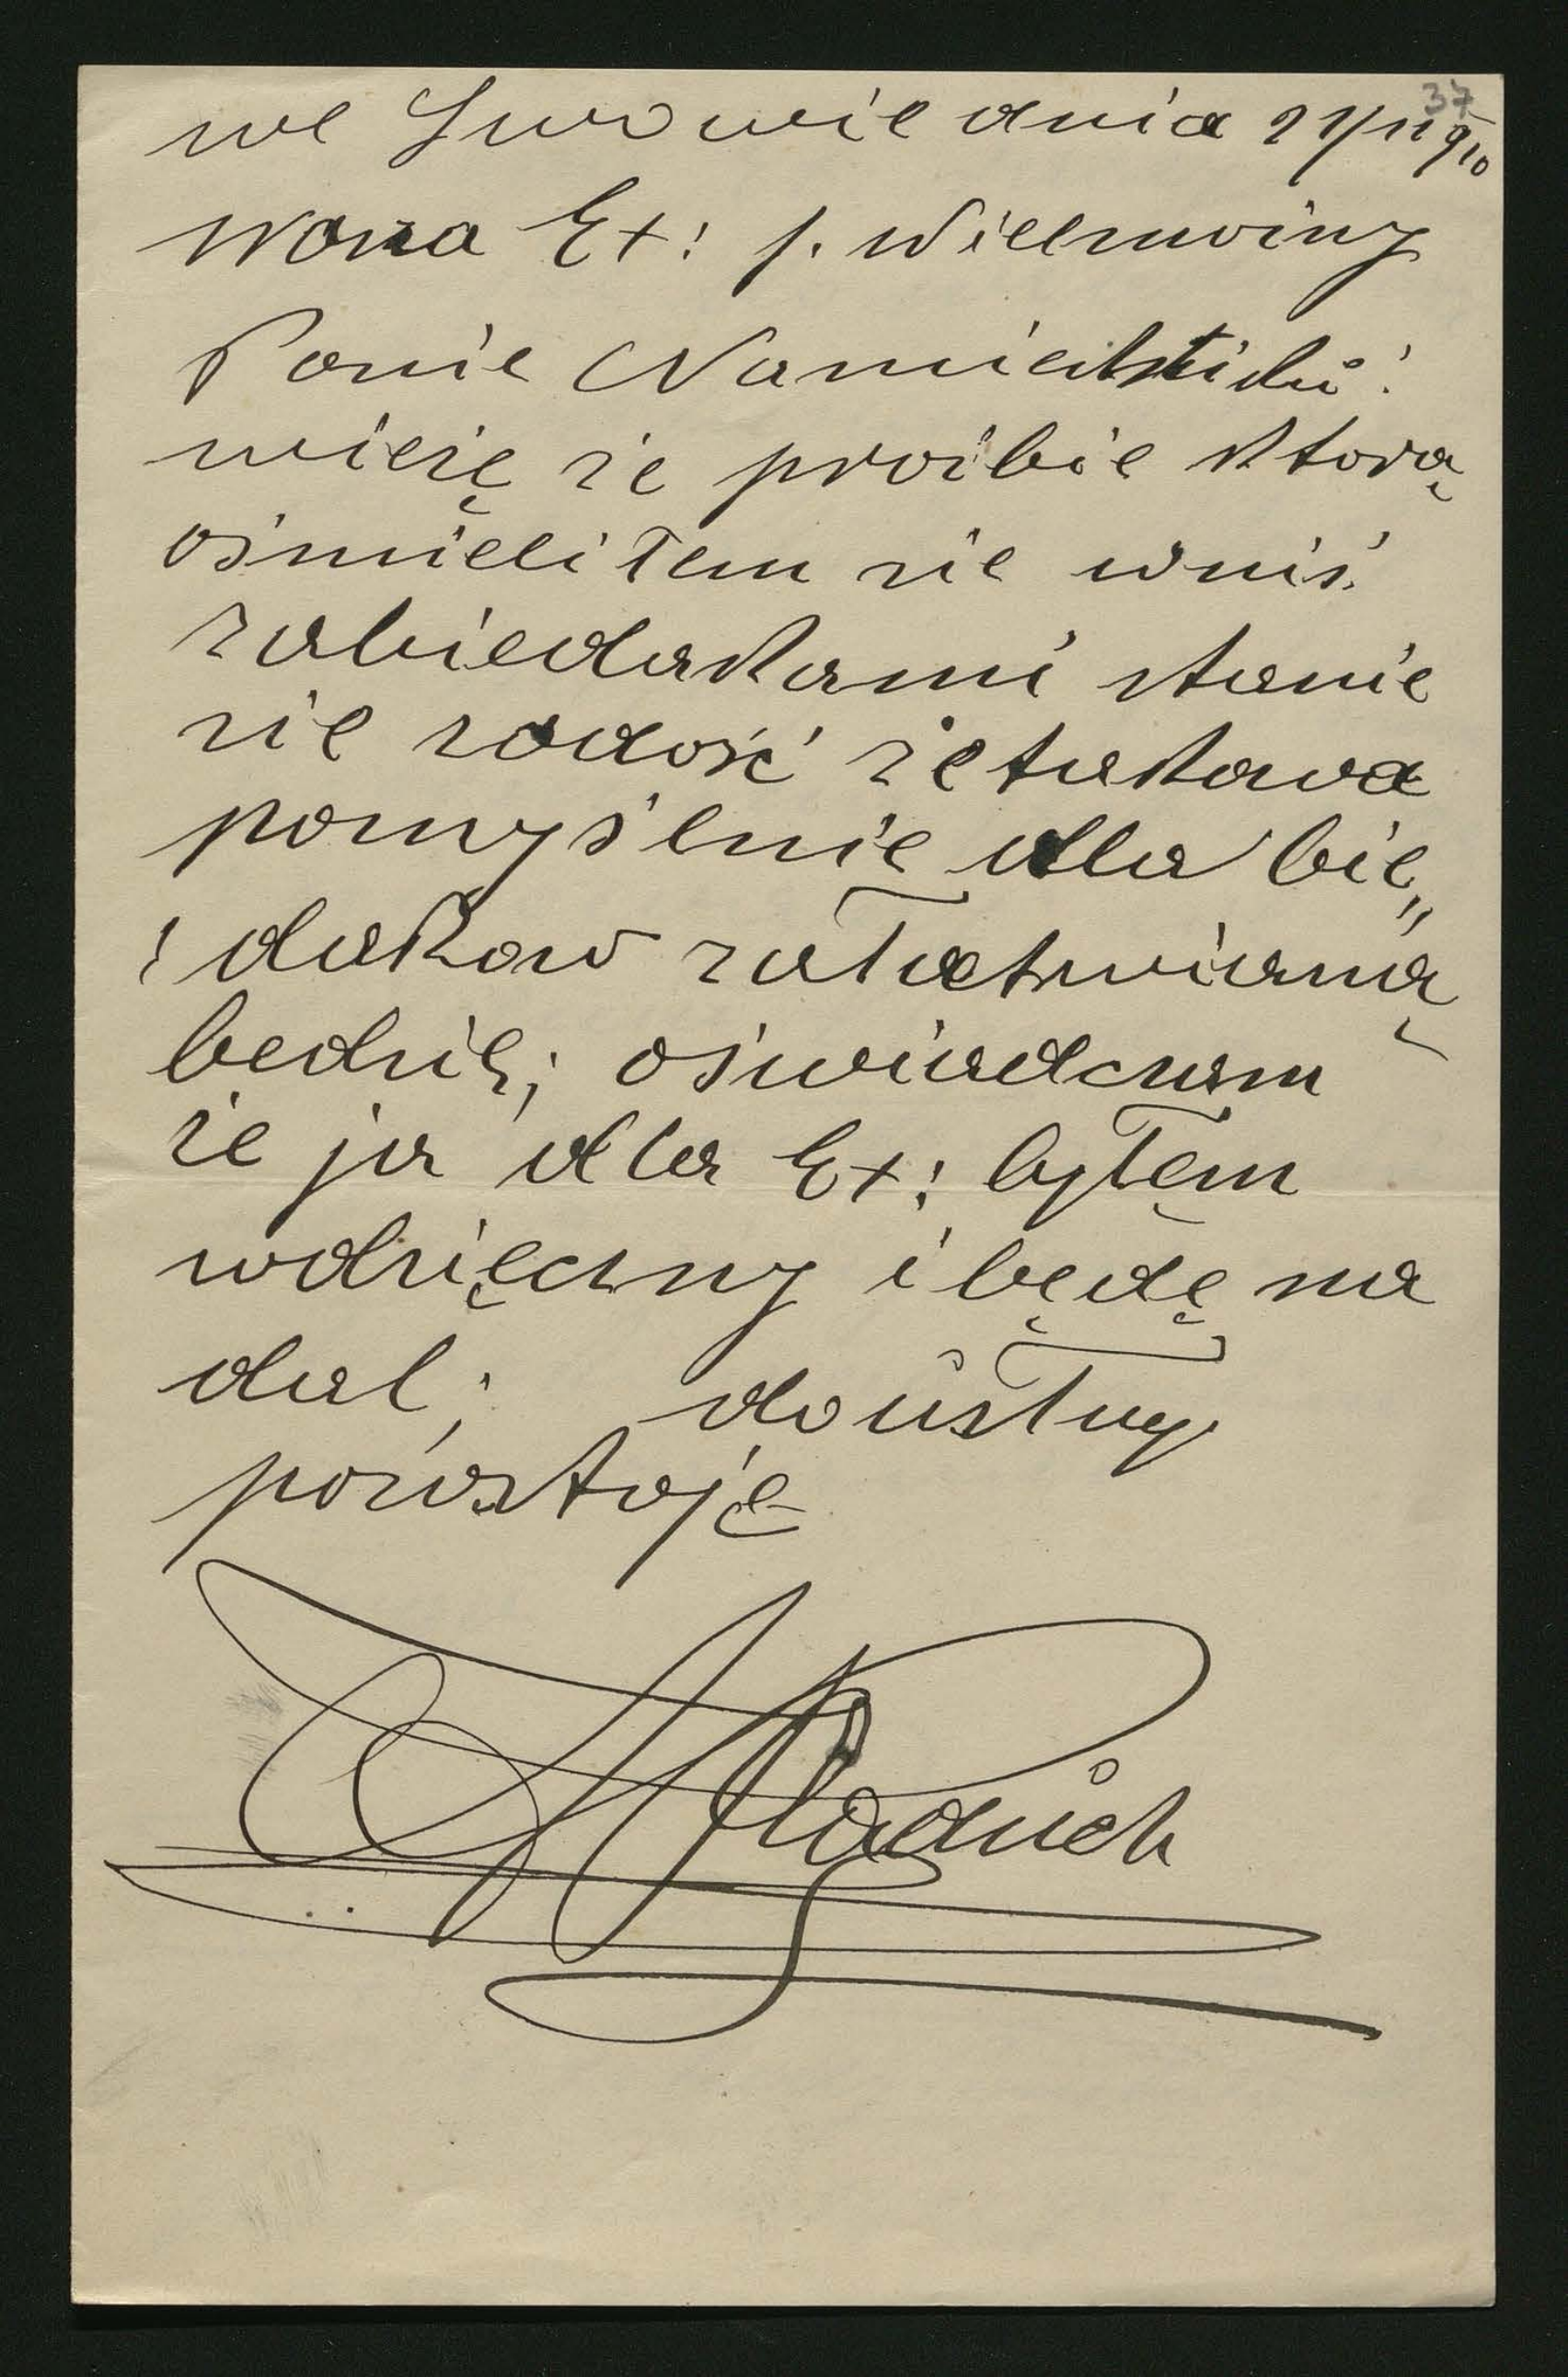 37
we Lwowie dnia 21/11 910
Wasza Ex: J. Wielmożny
Panie Namiestniku!
wieżę że prośbie ktorą
ośmieliłem sie wniś
zabiedakami stanie
sie zadość że takowa
pomyślnie dla bie„
„dakow załatwianą
będzie; oświadczam
że ja dla Ex: byłem
wdzięczny i będę na
dal; do usług
pozostaję